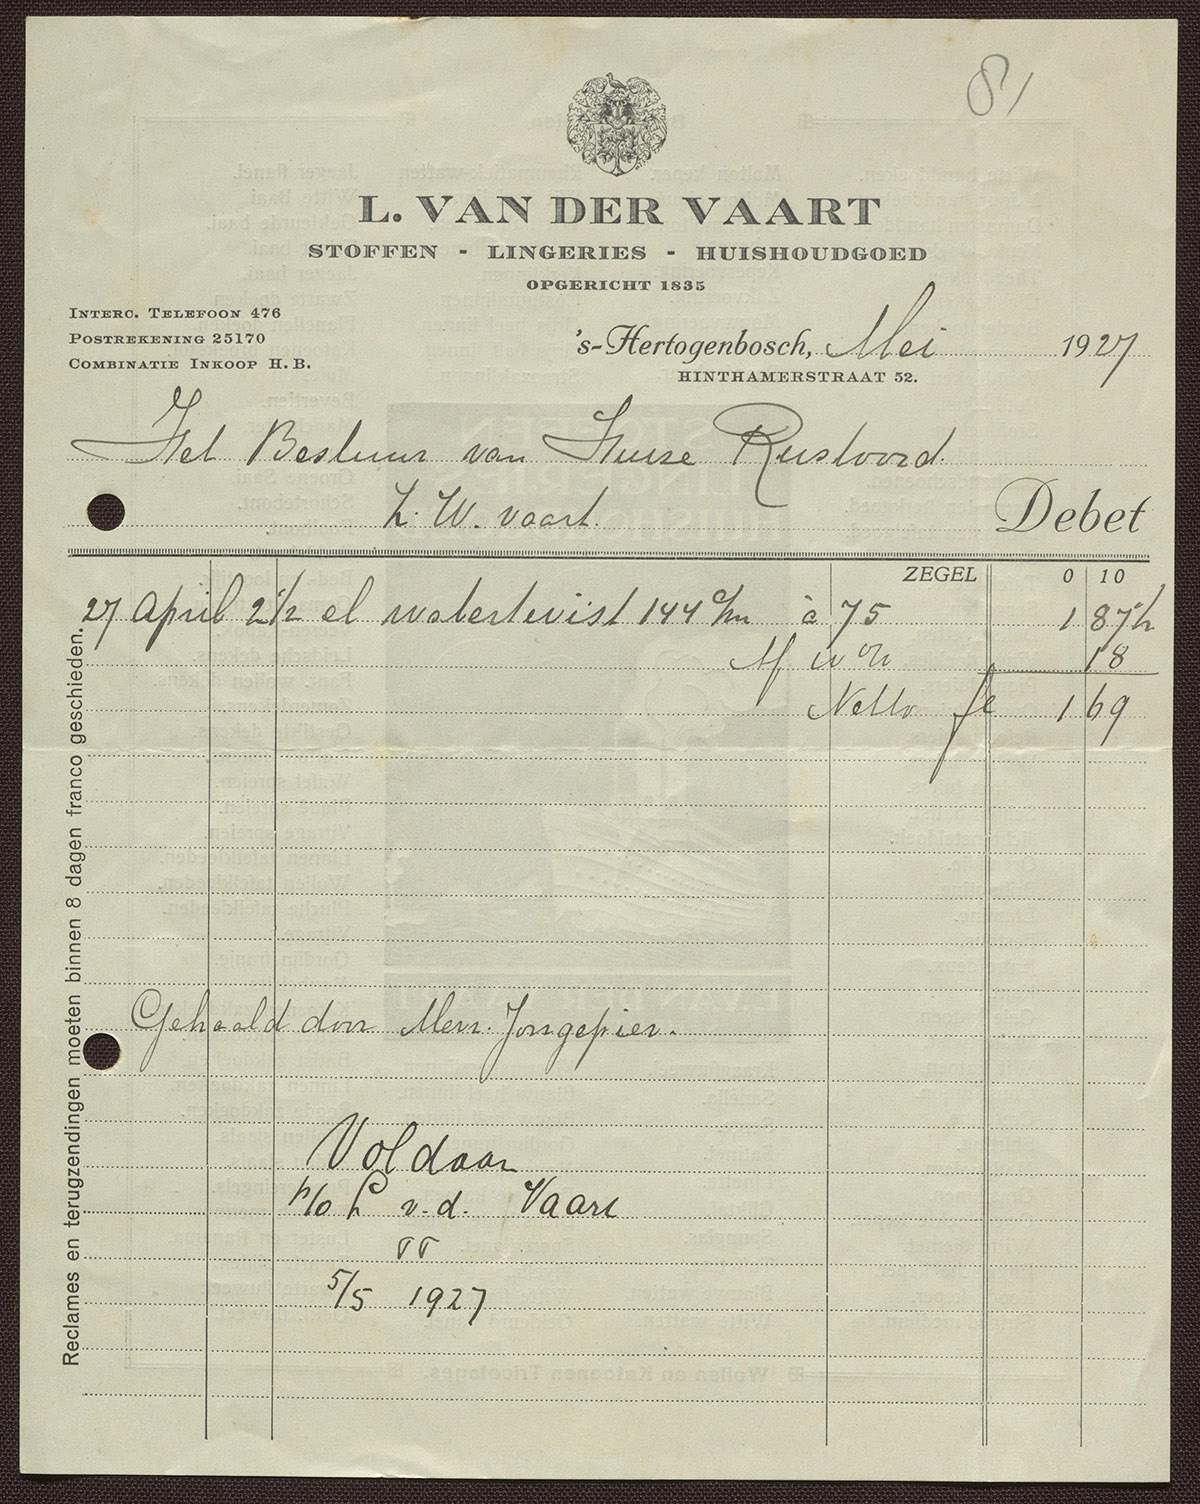 81
L. VAN DER VAART
STOFFEN - LINGERIES - HUISHOUDGOED
OPGERICHT 1835
INTERC. TELEFOON 476
POSTREKENING 25170
COMBINATIE INKOOP H.B.
's-Hertogenbosch, Mei 1927
HINTHAMERSTRAAT 52.
Het Bestuur van Huize Rustoord
L. W. vaart.
Debet
ZEGEL 0 10
27 April 2 1/2 el watertwist 144 c/m à 75 1 87 1/2
Af 10 % 18
Netto fl 1 69
Reclames en terugzendingen moeten binnen 8 dagen franco geschieden.
Gehaald door Mevr. Jongepier.
Voldaan
p/o L v.d. Vaart
5/5 1927